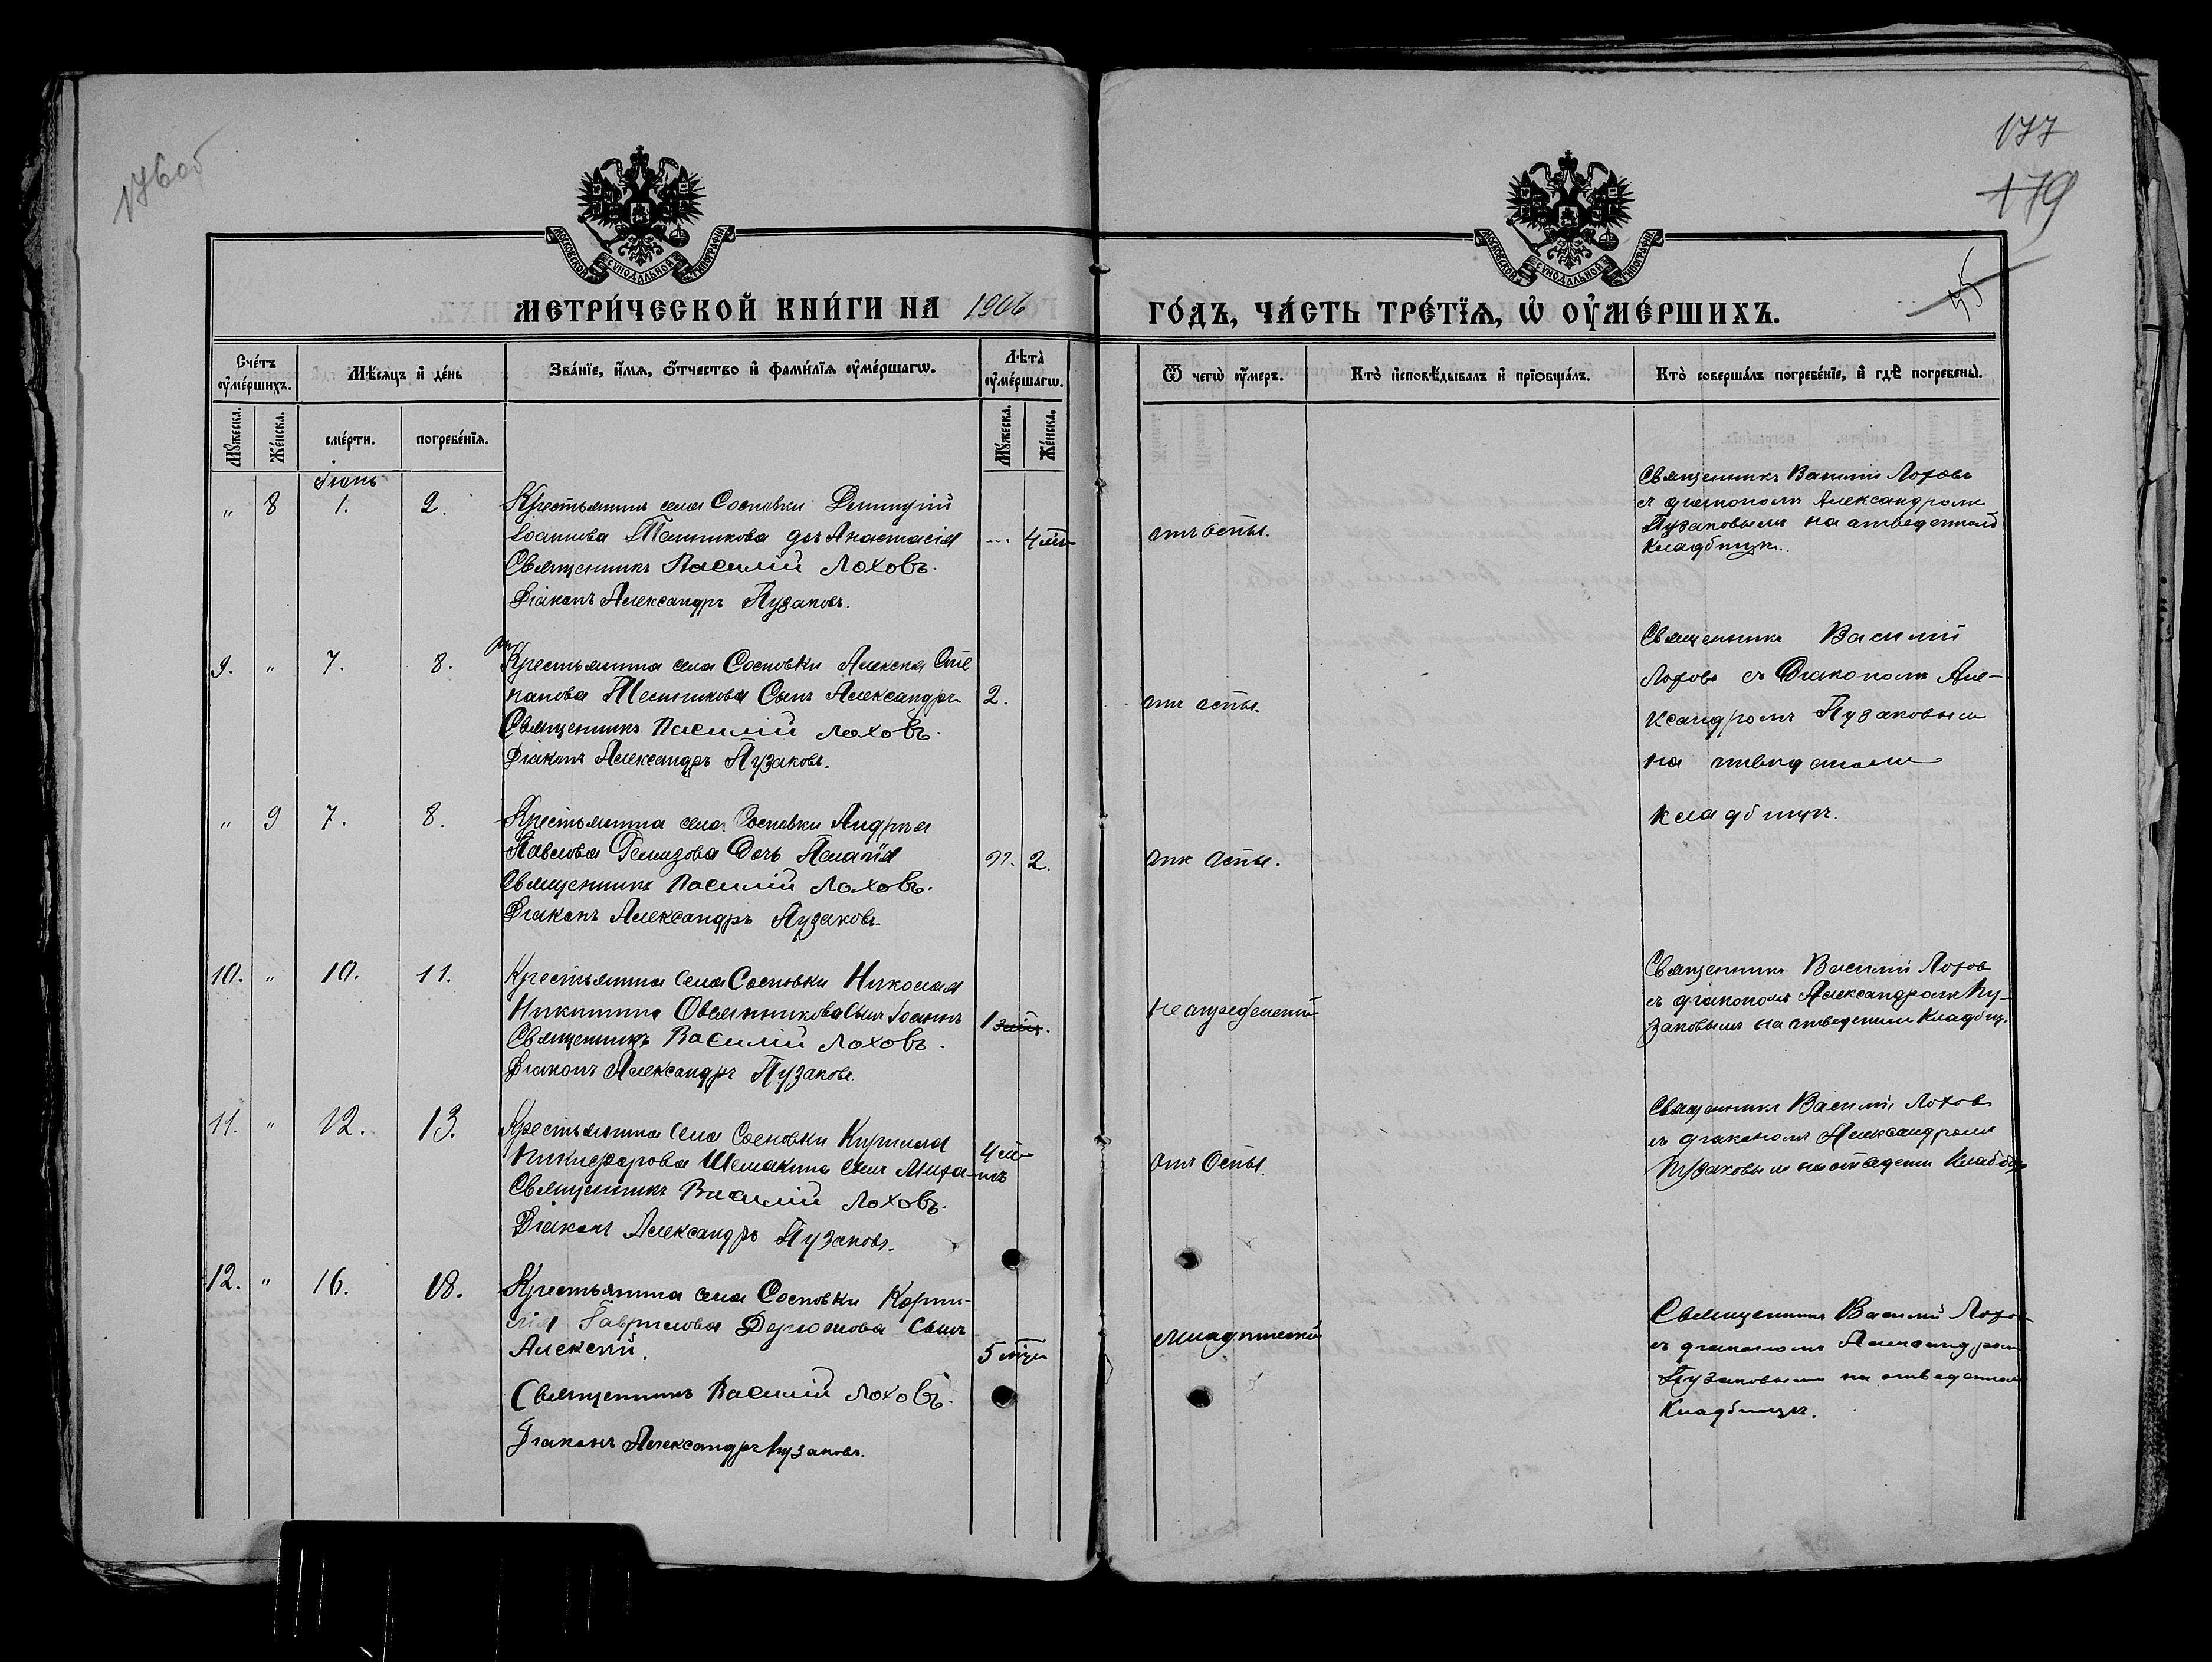 176об
177
179
55
МОСКОВСКОЙ СѴНОДАЛЬНОЙ ТИПОГРАФІИ
МОСКОВСКОЙ СѴНОДАЛЬНОЙ ТИПОГРАФІИ
МЕТРИ́ЧЕСКОЙ КНИ́ГИ НА 1906 ГО́ДЪ, ЧА́СТЬ ТРЕ́ТІѦ, Ѡ҆ ОУ҆МЕ́РШИХЪ.
Сче́тъ оу҆ме́ршихъ.
Мѣ́сяцъ и҆ де́нь
Зва́нїе, и҆́мѧ, ѻ҆́тчество и҆ фами́лїѧ оу҆ме́ршагѡ.
Лѣта̀ оу҆ме́ршагѡ.
Ѿ чегѡ̀ оу҆́меръ.
Кто̀ и҆сповѣ́дывалъ и҆ прїѡбща́лъ.
Кто̀ соверша́лъ погребе́нїе, и҆ гдѣ̀ погребены̀.
Мꙋ́жеска.
Же́нска.
сме́рти.
погребе́нїѧ.
Мꙋ́жеска.
Же́нска.
Іюнь
" 8 1. 2.
Крестьянина села Сосновки Димитрій
Іоаннова дочь Анастасія
Священникъ Василій Лоховъ.
Діаконъ Александръ Пузаковъ.
4
отъ оспы.
Священникъ Василій Лоховъ
съ діакономъ Александромъ
Пузаковымъ на отведенномъ
кладбищѣ.
9. " 7. 8.
Крестьянина села Сосновки Алексѣя Сте
панова Сынъ Александръ
Священникъ Василій Лоховъ.
Діаконъ Александръ Пузаковъ.
2.
отъ оспы.
Священникъ Василій
Лоховъ съ Діакономъ Але-
ксандромъ Пузаковымъ
на отведенномъ
кладбищѣ.
" 9 7. 8.
Крестьянина села Сосновки Андрея
Павлова Дочь Пелагія
Священникъ Василій Лоховъ.
Діаконъ Александръ Пузаковъ.
". 2.
отъ оспы.
10. " 10. 11.
Крестьянина села Сосновки Николая
Никитина Овсянникова сынъ Іоаннъ
Священникъ Василій Лоховъ.
Діаконъ Александръ Пузаковъ.
1
Священникъ Василій Лоховъ
съ діакономъ Александромъ Пу-
заковымъ на отведенномъ кладбищ.
11. " 12. 13.
Крестьянина села Сосновки Кирилла
Никифорова Шемакина сынъ Миха-
илъ
Священникъ Василій Лоховъ.
Діаконъ Александръ Пузаковъ.
4
отъ Оспы.
Священникъ Василій Лоховъ
съ діакономъ Александромъ
Пузаковымъ на отведен кладбищ
12. " 16. 18.
Крестьянина села Сосновки Корни-
лія Гаврилова сынъ
Алексѣй.
Священникъ Василій Лоховъ.
Діаконъ Александръ Пузаковъ.
5
Священникъ Василій Лоховъ
съ діакономъ Александромъ
Пузаковымъ на отведенномъ
кладбищѣ.